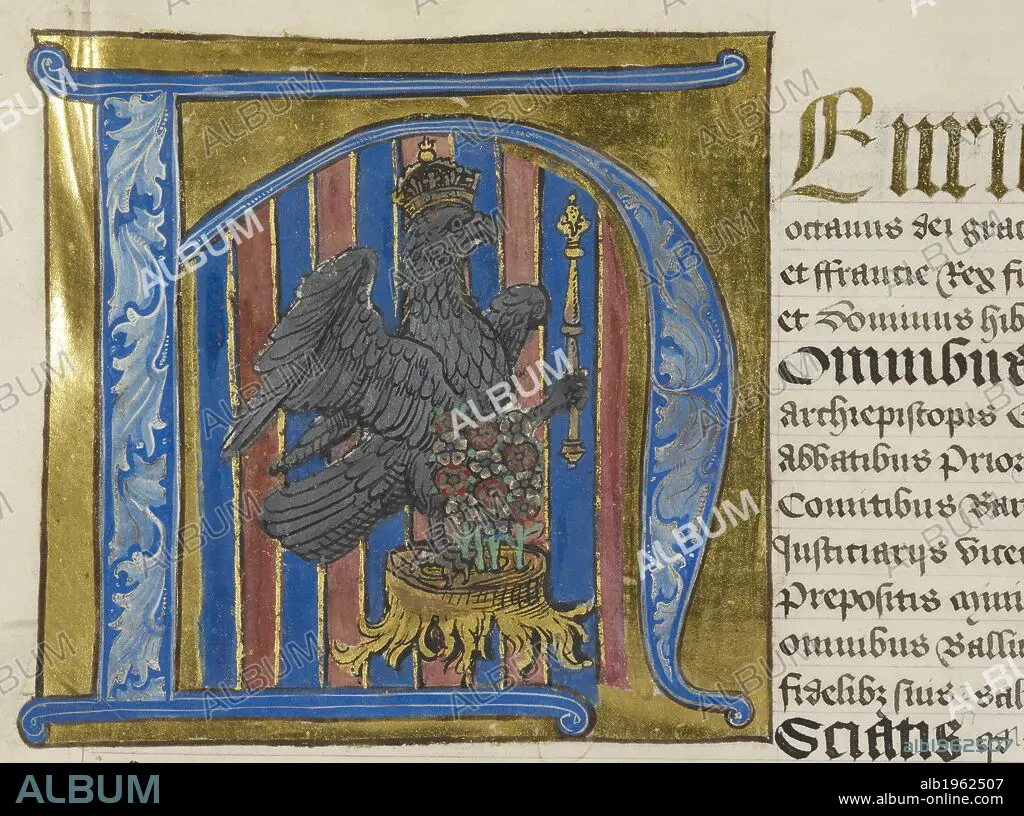 H
Enri
octauus dei grac
et ffrancie Rex fi
et Dominus hib
Omnibus
archiepiscopis E
Abbatibus Prior
Comitibus Bar
Justiciarijs vice
Prepositis mini
omnibus Balli
fidelibz suis sal
Sciatis
ALBUM
alb1962507
ALBUM
alb1962507
www.album-online.com